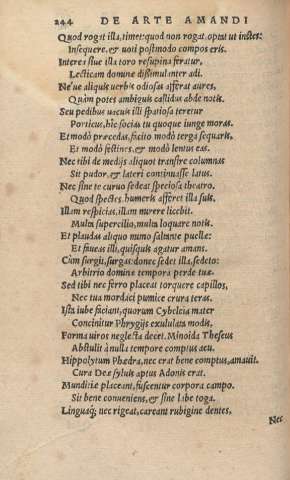 244 DE ARTE AMANDI
Quod rogat illa, timet: quod non rogat, optat ut instes:
Insequere, & uoti postmodo compos eris.
Interea siue illa toro resupina feratur,
Lecticam dominæ dissimulanter adi.
Ne'ue aliquis uerbis odiosas afferat aures,
Quàm potes ambiguis callidus abde notis.
Seu pedibus uacuis illi spatiosa teretur
Porticus, hîc socias tu quoque iunge moras.
Et modò præcedas, facito modò terga sequaris,
Et modò festines, & modò lentus eas.
Nec tibi de medijs aliquot transire columnas
Sit pudor, & lateri continuasse latus.
Nec sine te curuo sedeat speciosa theatro,
Quod spectes, humeris afferet illa suis.
Illam respicias, illam mirere licebit.
Multa supercilio, multa loquare notis.
Et plaudas aliquo mimo saltante puellæ:
Et faueas illi, quisquis agatur amans.
Cùm surgit, surgas: donec sedet illa, sedeto:
Arbitrio dominæ tempora perde tuæ.
Sed tibi nec ferro placeat torquere capillos,
Nec tua mordaci pumice crura teras.
Ista iube faciant, quorum Cybeleia mater
Concinitur Phrygijs exululata modis.
Forma uiros neglecta decet. Minoida Theseus
Abstulit à nulla tempore comptus acu.
Hippolytum Phædra, nec erat bene comptus, amauit.
Cura Deæ syluis aptus Adonis erat.
Munditiæ placeant, fuscentur corpora campo.
Sit bene conueniens, & sine labe toga.
Linguaq; nec rigeat, careant rubigine dentes,
Nec